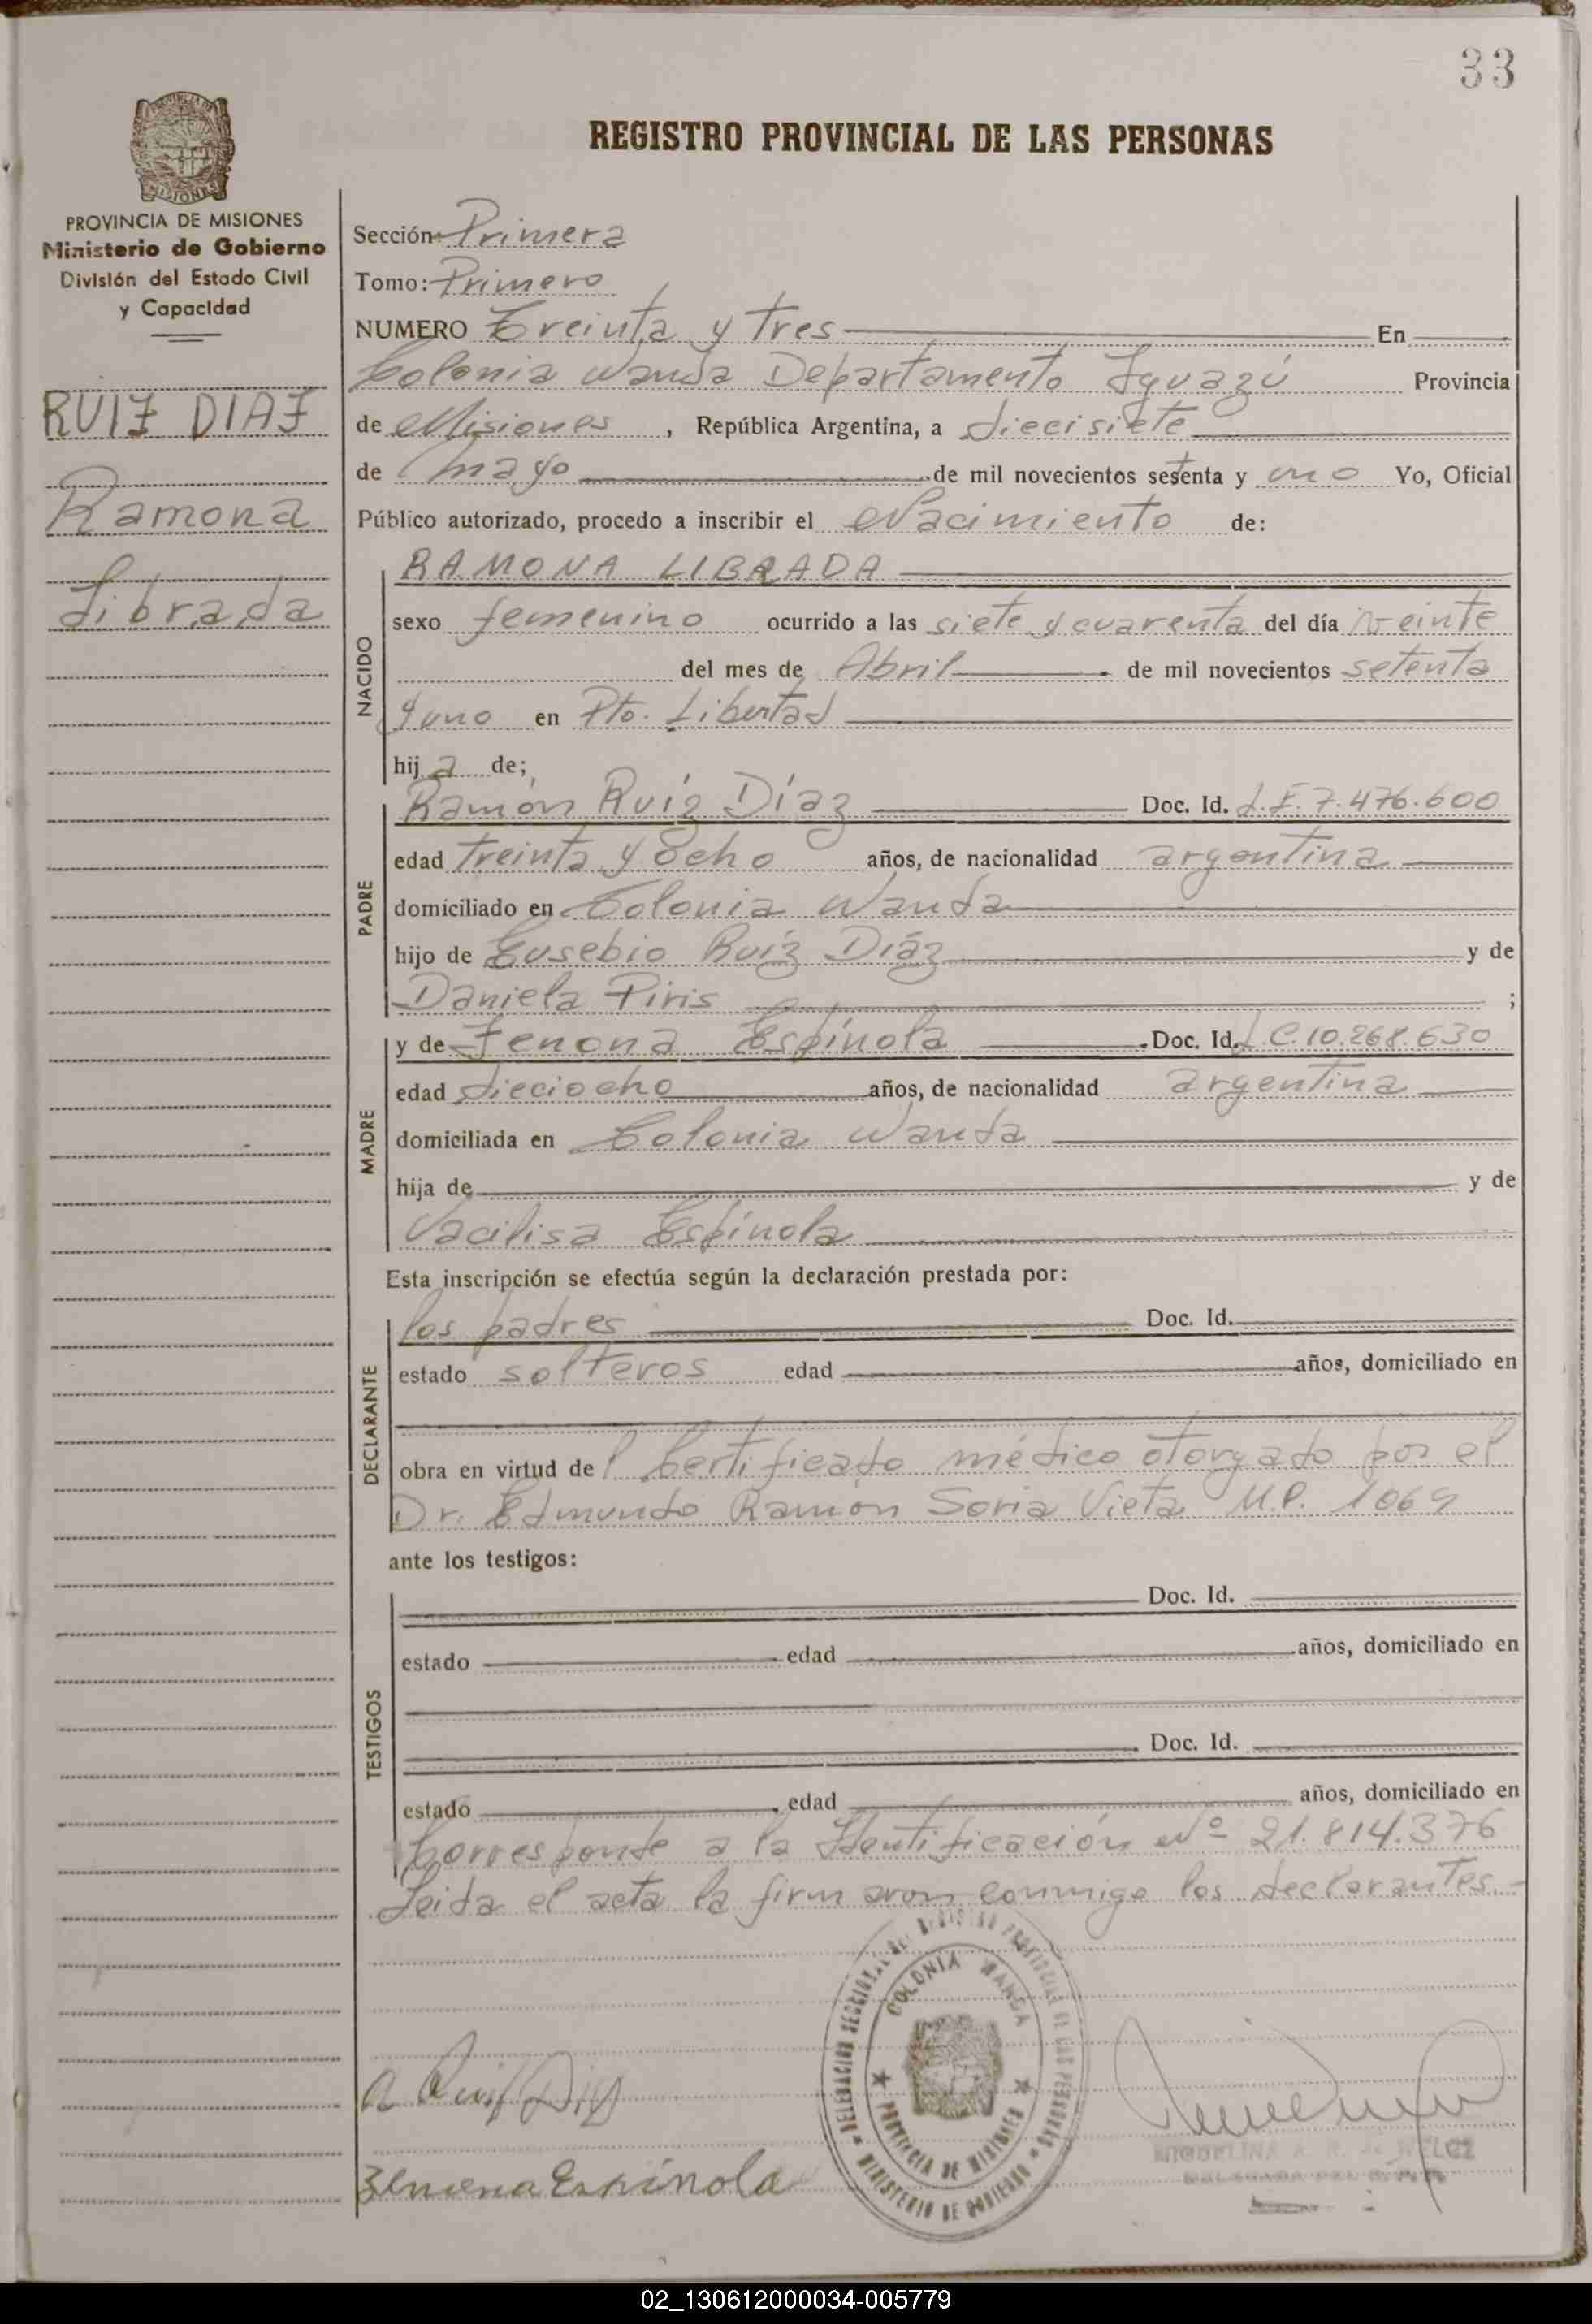 33
REGISTRO PROVINCIAL DE LAS PERSONAS
PROVINCIA DE MISIONES
Ministerio de Gobierno
División del Estado Civil
y Capacidad
RUIZ DIAZ
Ramona
Librada
Sección: Primera
Tomo: Primero
NUMERO Treinta y tres En
Colonia Wanda Departamento Iguazú Provincia
de Misiones, República Argentina, a diecisiete
de mayo de mil novecientos setenta y uno Yo, Oficial
Público autorizado, procedo a inscribir el Nacimiento de:
NACIDO
RAMONA LIBRADA
sexo femenino ocurrido a las siete y cuarenta del día veinte
del mes de Abril de mil novecientos setenta
y uno en Pto. Libertad
hija de;
PADRE
Ramón Ruiz Díaz Doc. Id. L.E. 7.476.600
edad treinta y ocho años, de nacionalidad argentina
domiciliado en Colonia Wanda
hijo de Eusebio Ruiz Díaz y de
Daniela Piris ;
MADRE
y de Zenona Espínola Doc. Id. L.C. 10.268.630
edad dieciocho años, de nacionalidad argentina
domiciliada en Colonia Wanda
hija de y de
Vacilisa Espínola
Esta inscripción se efectúa según la declaración prestada por:
DECLARANTE
los padres Doc. Id.
estado solteros edad años, domiciliado en
obra en virtud del Certificado médico otorgado por el
Dr. Edmundo Ramón Soria Vieta M.P. 1069
ante los testigos:
TESTIGOS
Doc. Id.
estado edad años, domiciliado en
Doc. Id.
estado edad años, domiciliado en
Corresponde a la Identificación Nº 21.814.376
Leida el acta la firmaron conmigo los declarantes.-
COLONIA WANDA
PROVINCIA DE MISIONES
MINISTERIO DE GOBIERNO
R Ruiz Diaz
Zenona Espínola
02_130612000034-005779